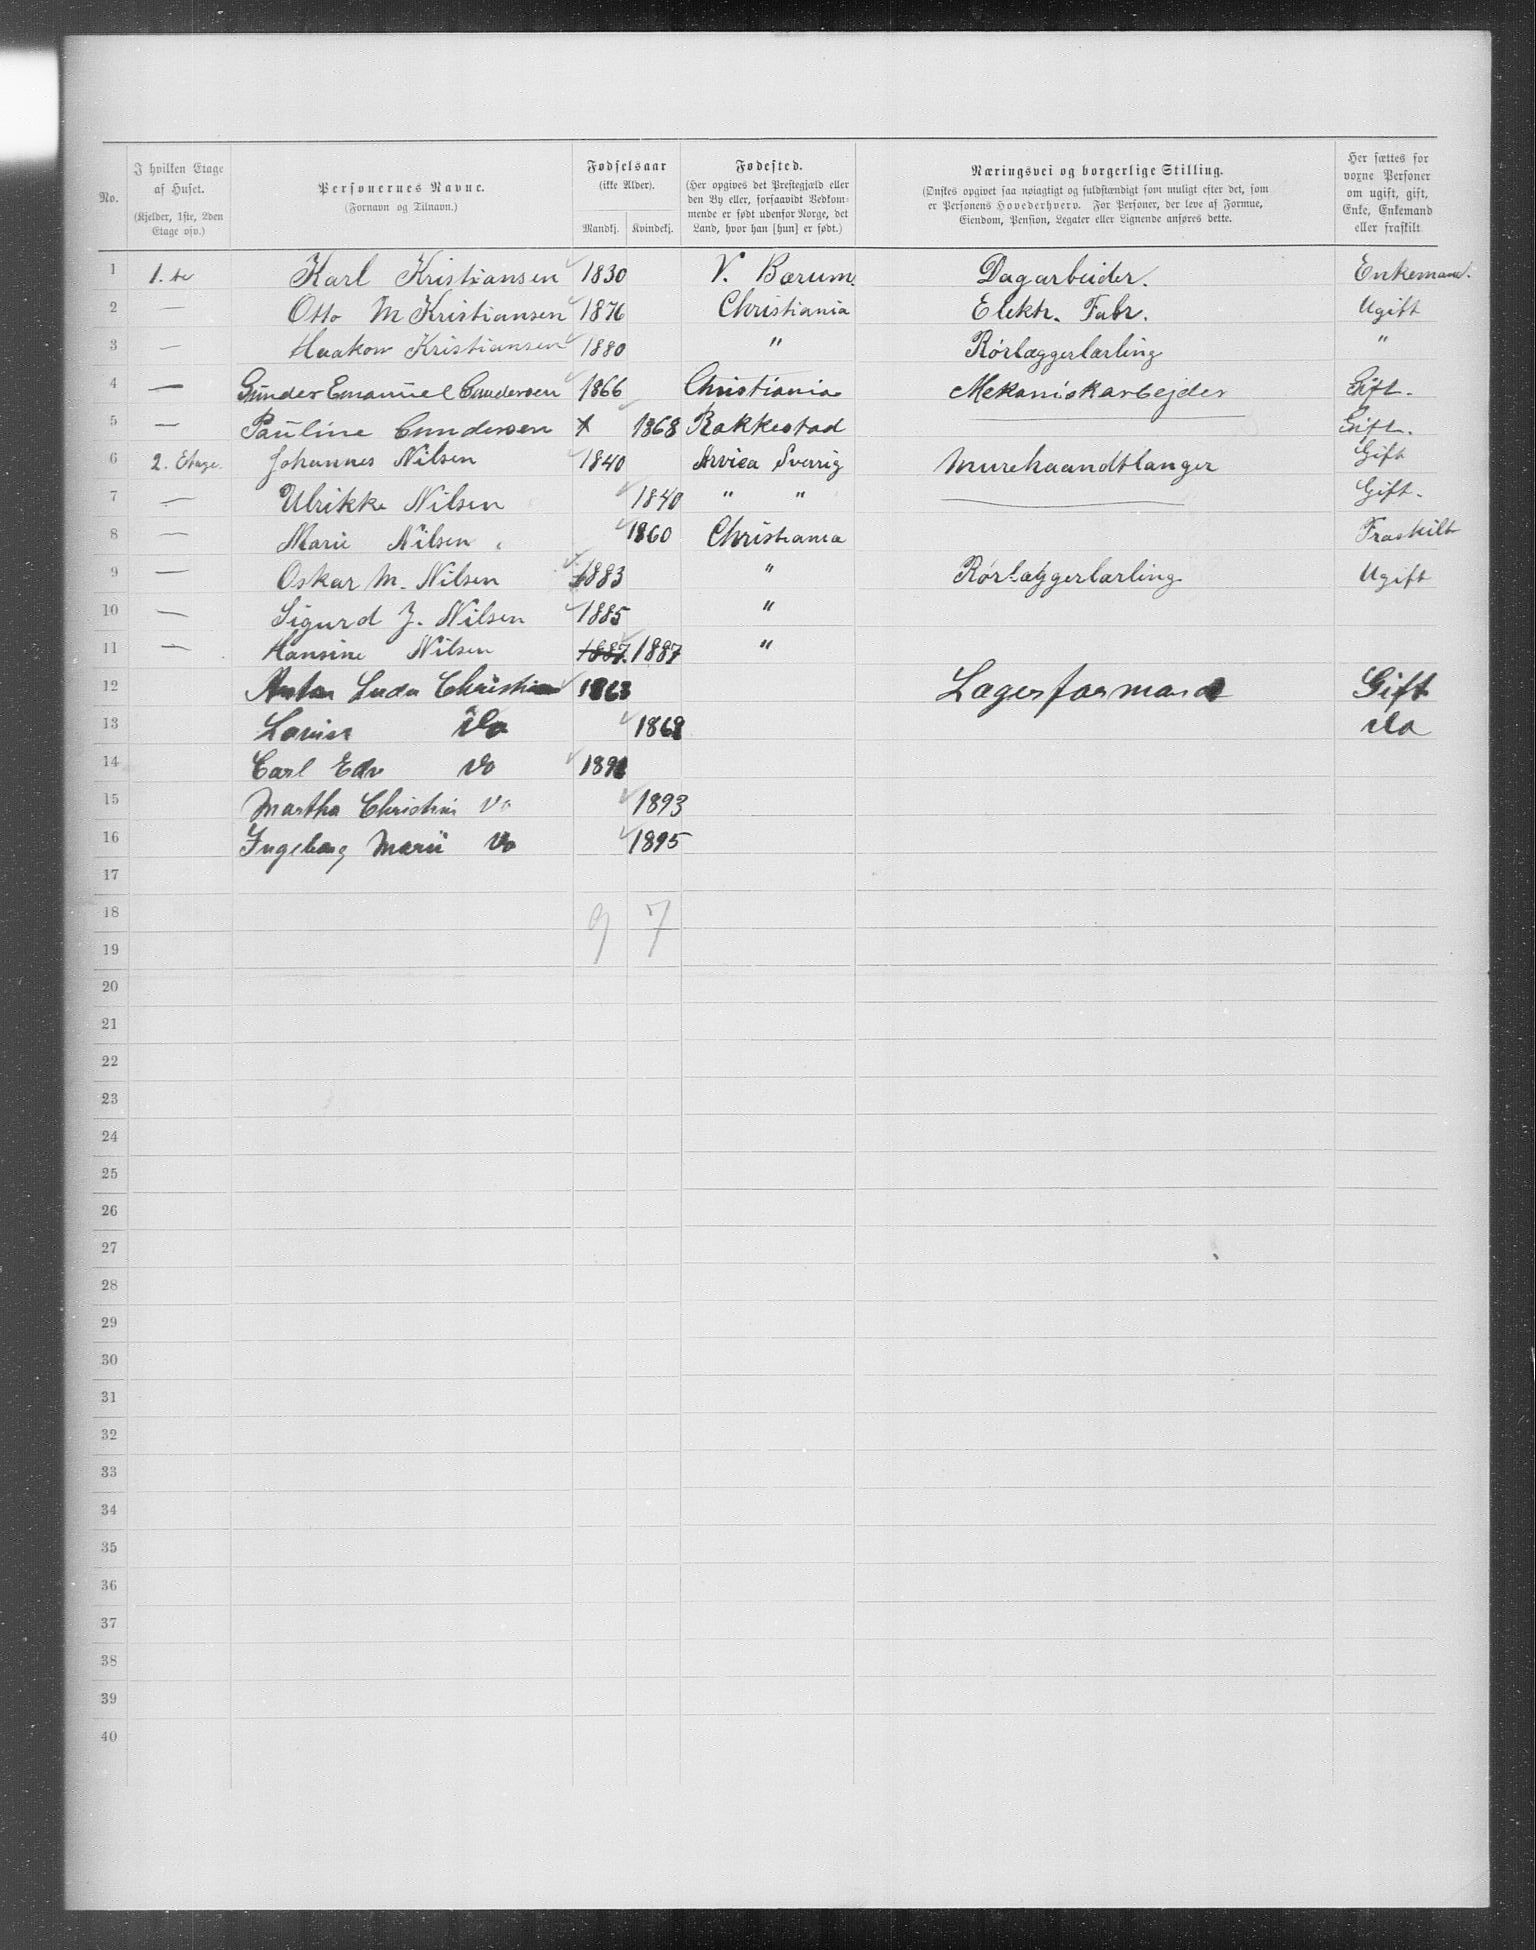 No.
I hvilken Etage af Huset.
(Kjelder, 1ste, 2den Etage osv.)
Personernes Navne.
(Fornavn og Tilnavn.)
Fødselsaar
(ikke Alder).
Mandkj. Kvindekj.
Fødested.
(Her opgives det Prestegjæld eller
den By eller, forsaavidt Vedkom-
mende er født udenfor Norge, det
Land, hvor han [hun] er født.)
Næringsvei og borgerlige Stilling.
(Ønskes opgivet saa nøiagtigt og fuldstændigt som muligt efter det, som
er Personens Hovederhverv. For Personer, der leve af Formue,
Eiendom, Pension, Legater eller Lignende anføres dette.
Her sættes for
voxne Personer
om ugift, gift,
Enke, Enkemand
eller fraskilt
1 1.te Karl Kristiansen 1830 V. Bærum. Dagarbeider. Enkemand.
2 — Otto M Kristiansen 1876 Christiania Elektr. Fabr. Ugift
3 — Haakon Kristiansen 1880 " Rörlæggerlærling "
4 — Gunder Emanuel Gundersen 1866 Christiania Mekaniskarbejder Gift.
5 — Pauline Gundersen x 1868 Rakkestad — Gift.
6 2. Etage. Johannes Nilsen 1840 Arvica Sverrig Murehaandtlanger Gift
7 — Ulrikke Nilsen 1840 " " — Gift.
8 — Marie Nilsen 1860 Christiania Fraskilt
9 — Oskar M. Nilsen 1883 " Rörlæggerlærling Ugift
10 — Sigurd J. Nilsen 1885 "
11 — Hansine Nilsen 1887 1887 "
12 Anton Christian 1863 Lagerformand Gift
13 Lovise Do 1868 Do
14 Carl Edv Do 1891
15 Martha Christine Do 1893
16 Ingeborg Marie Do 1895
17
18 9 7
19
20
21
22
23
24
25
26
27
28
29
30
31
32
33
34
35
36
37
38
39
40